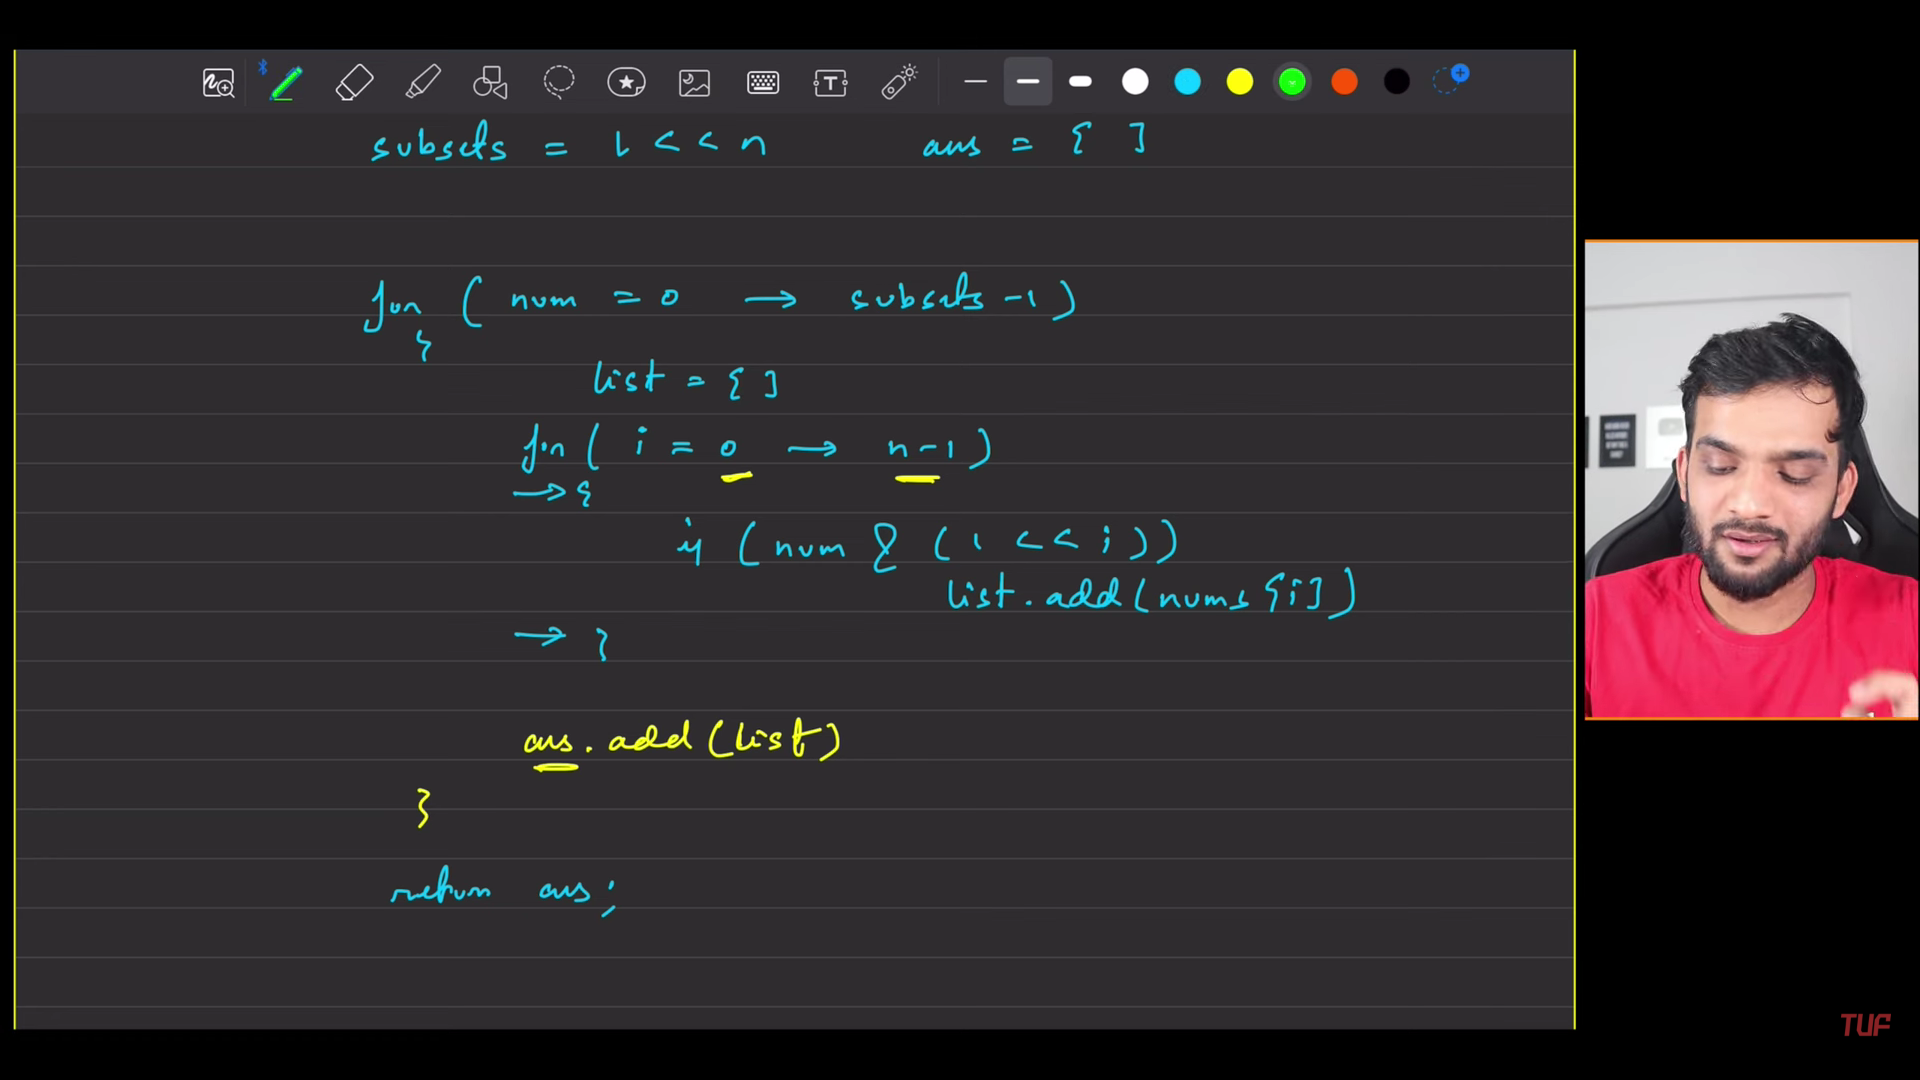 subsets = 1 << n    ans = { ]
for ( num = 0 → subsets -1 )
{
list = { ]
for ( i = 0 → n-1 )
→ {
if ( num & ( 1 << i ))
list.add(nums {i])
→ }
ans.add(list)
}
return ans;
T
TUF